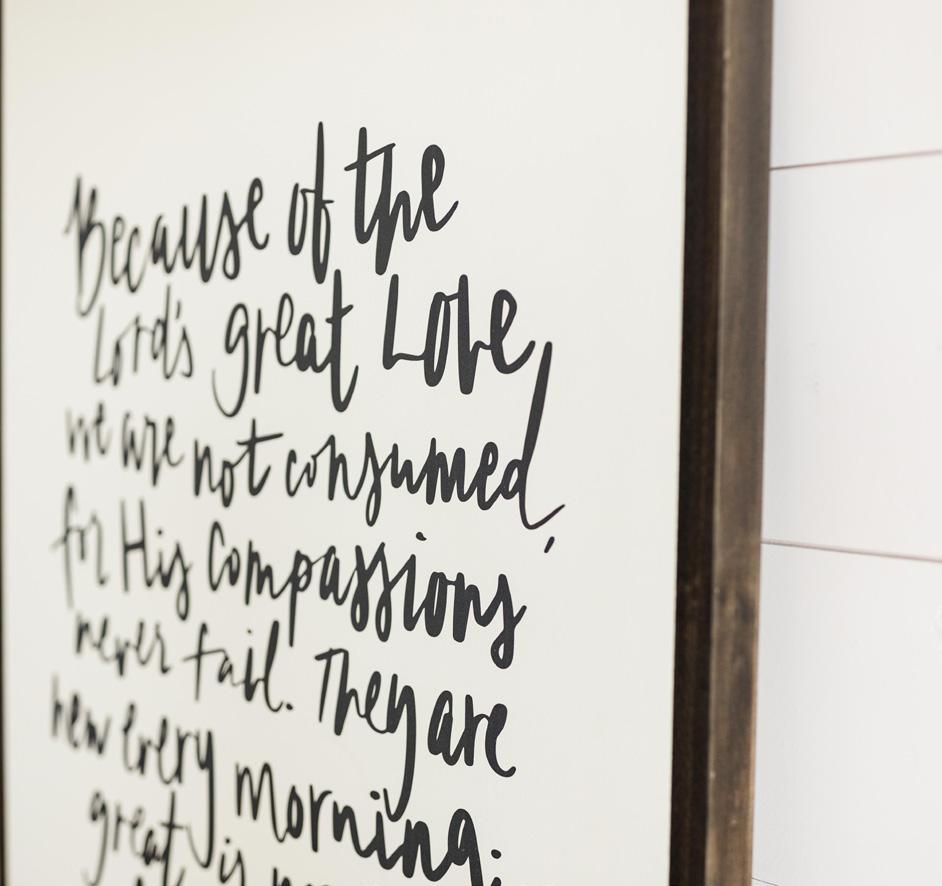 Because of the
Lord's great Love,
we are not consumed,
for His Compassions
never fail. They are
new every morning;
great is